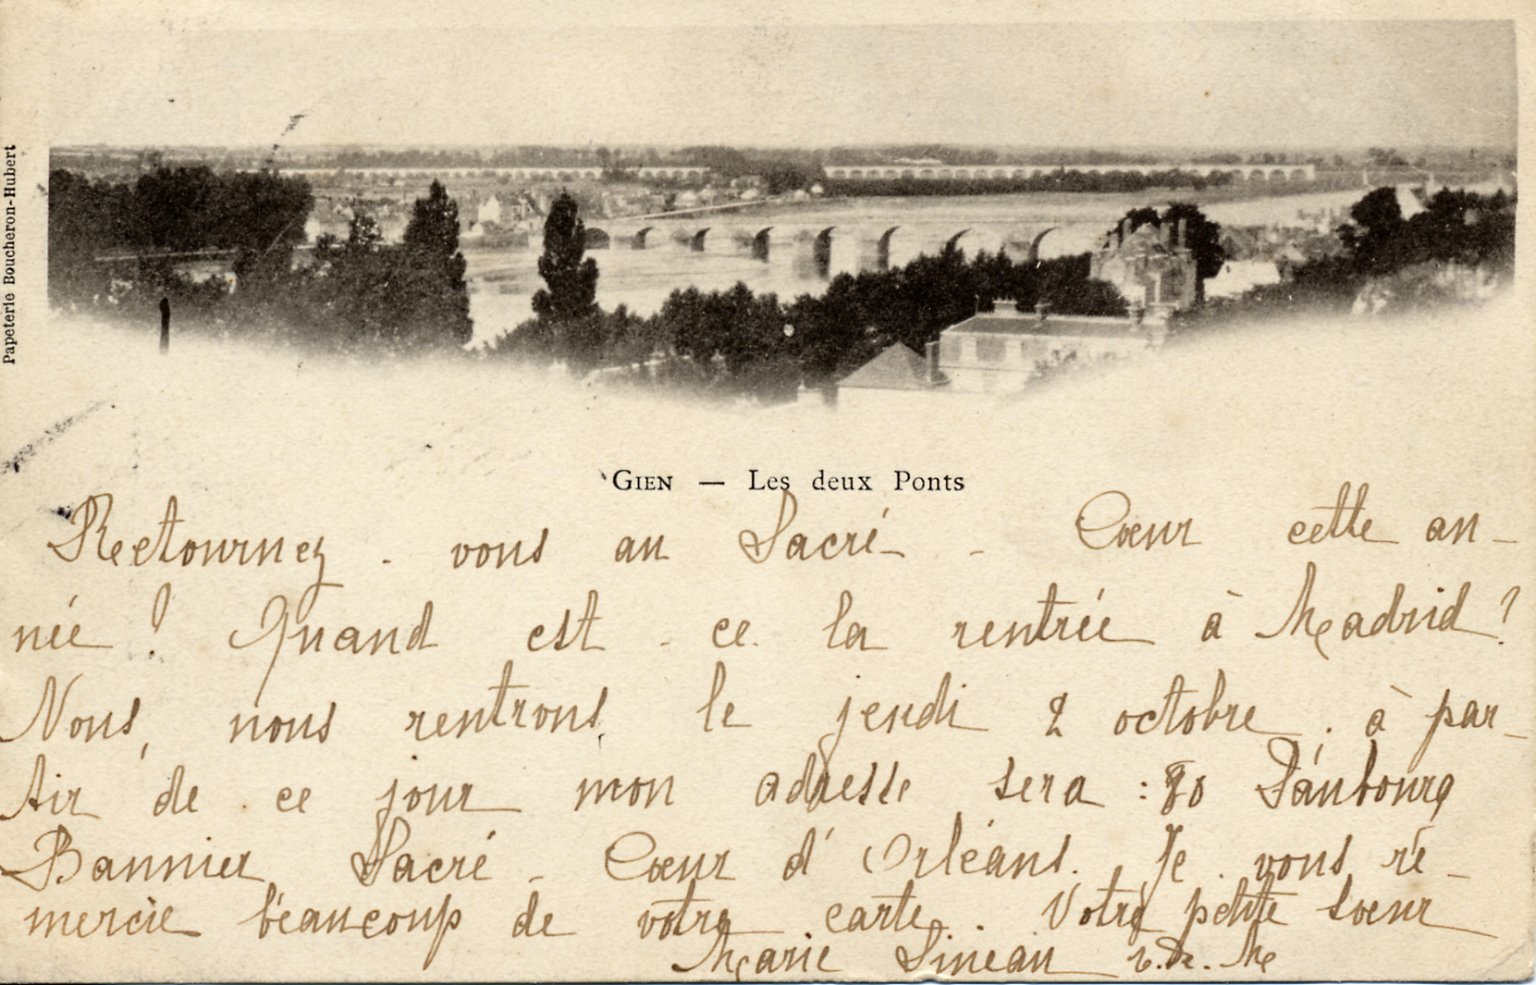 Papeterie Boucheron-Hubert
GIEN — Les deux Ponts
Reetournez - vous au Sacré - Cœur cette an-
née ? Quand est - ce la rentrée à Madrid ?
Nous, nous rentrons le jeudi 2 octobre. à par-
tir de ce jour mon adresse sera : 80 Faubourg
Bannier Sacré - Cœur d'Orléans. Je vous re-
mercie beaucoup de votre carte. Votre petite sœur
Marie Lineau